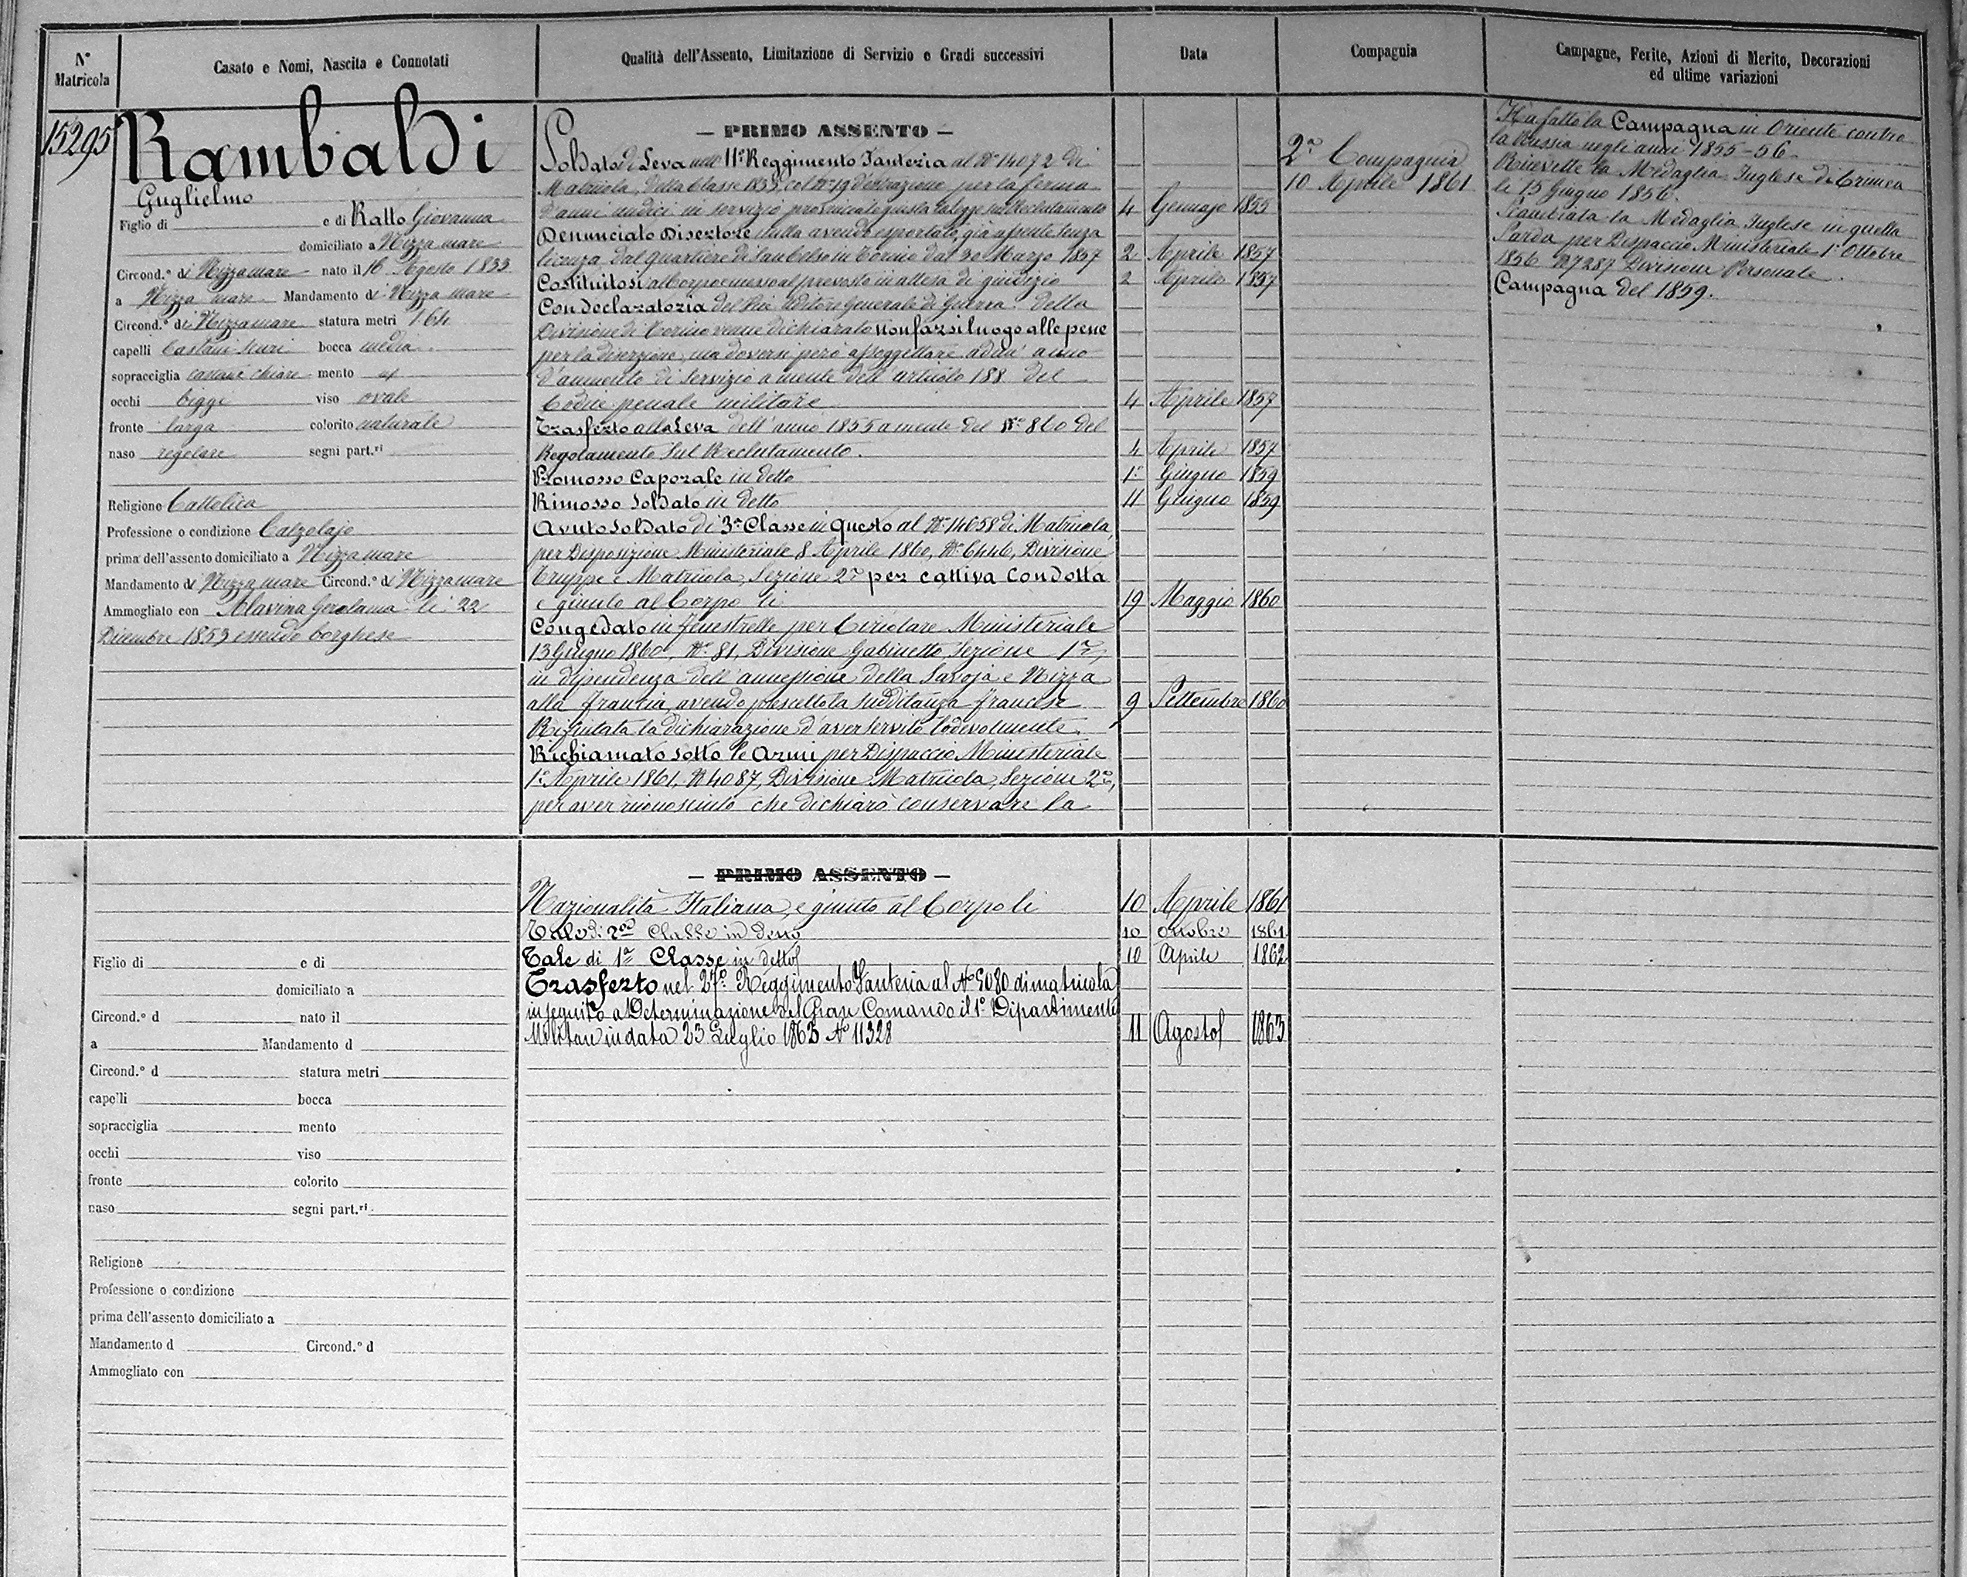 N° Matricola
Casato e Nomi, Nascita e Connotati
Qualità dell'Assento, Limitazione di Servizio e Gradi successivi
Data
Compagnia
Campagne, Ferite, Azioni di Merito, Decorazioni
ed ultime variazioni
15295
Rambaldi
Guglielmo
Figlio di e di Ratto Giovanna
domiciliato a Nizza mare
Circond.° di Nizza mare nato il 16 Agosto 1833
a Nizza mare Mandamento di Nizza mare
Circond.° di Nizza mare statura metri 1 64
capelli Castani scuri bocca media
sopracciglia castane chiare mento
occhi bigge viso ovale
fronte larga colorito naturale
naso regolare segni part.ri
Religione Cattolica
Professione o condizione Calzolajo
prima dell'assento domiciliato a Nizza mare
Mandamento di Nizza mare Circond.° di Nizza mare
Ammogliato con Alavina Gerolama li 22
Dicembre 1859 essendo borghese
— PRIMO ASSENTO —
Soldato di Leva nell' 11° Reggimento Fanteria al N° 14072 di
Matricola, della Classe 1833, col N° 19 d'estrazione per la ferma
d'anni undici in servizio provinciale giusta la legge sul Reclutamento 4 Gennajo 1855
Denunciato Disertore nulla avendo esportato, già assente senza
licenza dal quartiere di San Celso in Torino dal 30 Marzo 1857 2 Aprile 1857
Costituitosi al Corpo e messo al prevosto in attesa di giudizio 2 Aprile 1857
Con declaratoria del Uditore Generale di Guerra della
Divisione di Torino venne dichiarato non farsi luogo alle pene
per la diserzione, ma doversi però assoggettare ad un anno
d'aumento di servizio a mente dell'articolo 188 del
Codice penale militare 4 Aprile 1857
Trasferto alla Leva dell'anno 1855 a mente del N° 860 del
Regolamento sul Reclutamento. 4 Aprile 1857
Promosso Caporale in detto 1° Giugno 1859
Rimosso Soldato in detto 11 Giugno 1859
Avuto Soldato di 3a Classe in questo al N° 14658 di Matricola,
per Disposizione Ministeriale 8 Aprile 1860, N° 6446, Divisione
Truppe e Matricola, Sezione 2a per cattiva condotta
e giunto al Corpo li 19 Maggio 1860
Congedato in Fenestrelle per Circolare Ministeriale
13 Giugno 1860, N° 81, Divisione Gabinetto, Sezione 1a,
in dipendenza dell'annessione della Savoja e Nizza
alla Francia, avendo prescelto la sudditanza francese 9 Settembre 1860
Rifiutata la dichiarazione d'aver servito lodevolmente.
Richiamato sotto le Armi per Dispaccio Ministeriale
1° Aprile 1861, N 4087, Divisione Matricola, Sezione 2a,
per aver riconosciuto che dichiarò conservare la
2a Compagnia
10 Aprile 1861
Ha fatto la Campagna in Oriente contro
la Russia negli anni 1855-56
Ricevette la Medaglia Inglese di Crimea
li 15 Giugno 1856.
Scambiata la Medaglia Inglese in quella
Sarda per Dispaccio Ministeriale 1° Ottobre
1856 N 7287 Divisione Personale.
Campagna del 1859.
— PRIMO ASSENTO —
Nazionalità Italiana, e giunto al Corpo li 10 Aprile 1861
Tale di 2da Classe in detto 10 Ottobre 1861
Tale di 1a Classe in detto 10 Aprile 1862
Trasferto nel 27° Reggimento Fanteria al N° 5080 di matricola
in seguito a Determinazione del Gran Comando il 1° Dipartimento
Militare in data 23 Luglio 1863 N° 11328 11 Agosto 1863
Figlio di e di
domiciliato a
Circond.° d nato il
a Mandamento d
Circond.° d statura metri
capelli bocca
sopracciglia mento
occhi viso
fronte colorito
naso segni part.ri
Religione
Professione o condizione
prima dell'assento domiciliato a
Mandamento d Circond.° d
Ammogliato con